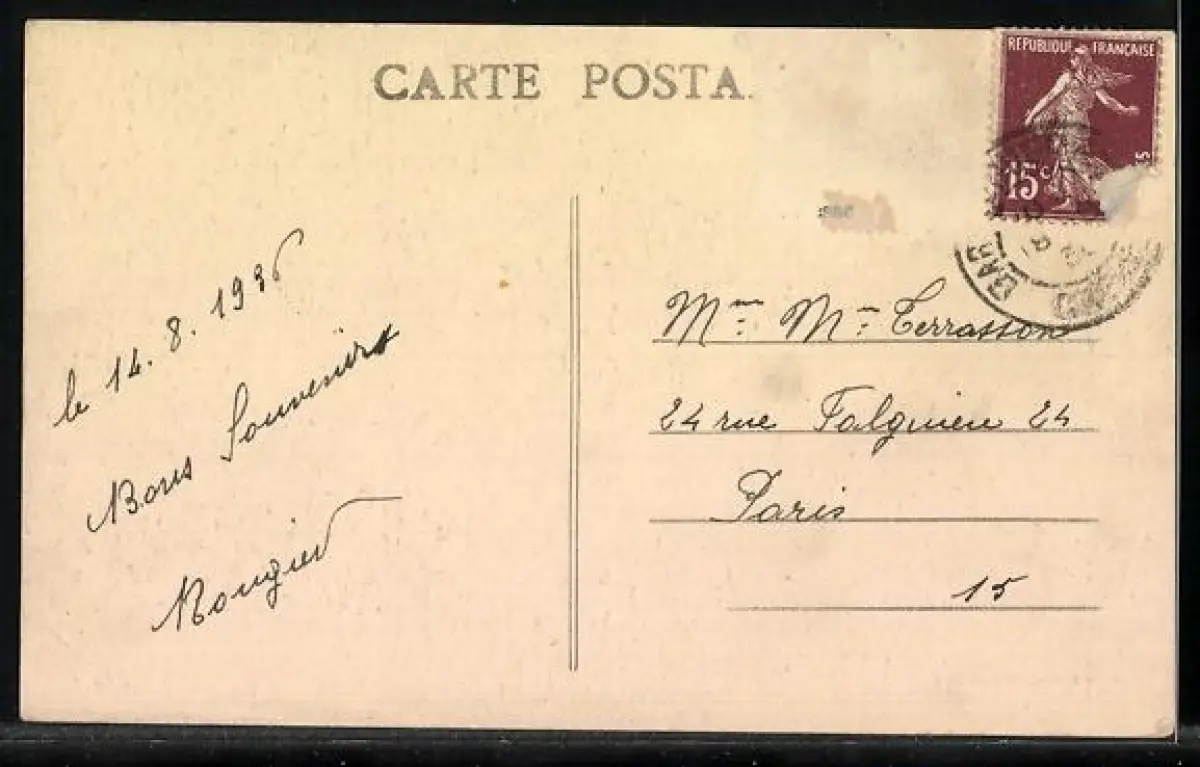 CARTE POSTA
REPUBLIQUE FRANÇAISE
15c
le 14.8.1936
Bons Souvenirs
Rougier
Mme Mme Terrasson
24 rue Falguiere 24
Paris
15